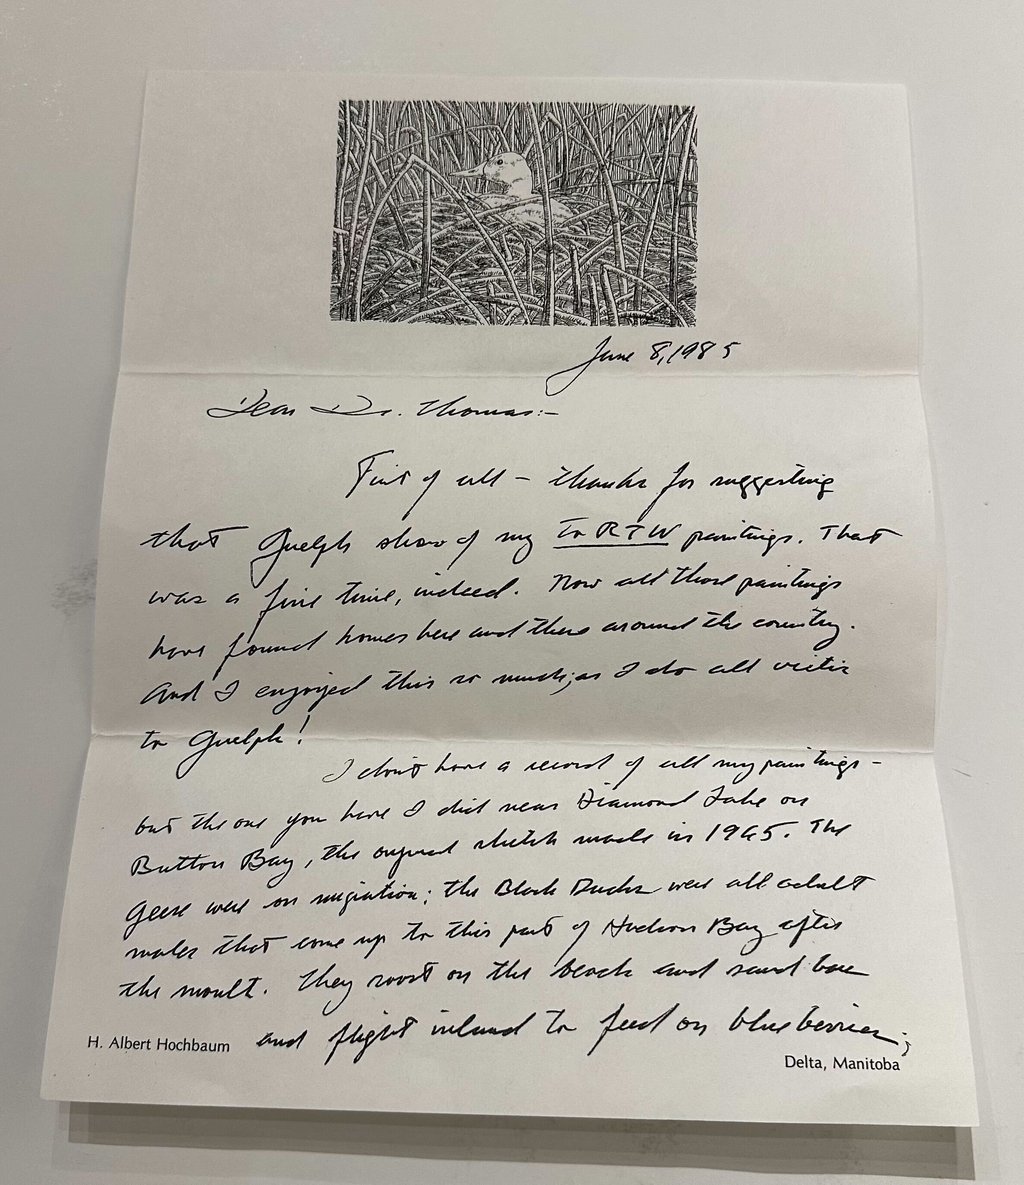 June 8, 1985
Dear Dr. Thomas:-
First of all - thanks for suggesting
that Guelph show of my To RTW paintings. That
was a fine time, indeed. Now all those paintings
have found homes here and there around the country.
And I enjoyed this so much, as I do all visits
to Guelph!
I don't have a record of all my paintings -
but the one you have I did near Diamond Lake on
Button Bay, the original sketch made in 1965. The
Geese were on migration; the Black Ducks were all adult
males that come up to this part of Hudson Bay after
the moult. They roost on the beach and sand bars
and flight inland to feed on blueberries;
H. Albert Hochbaum
Delta, Manitoba